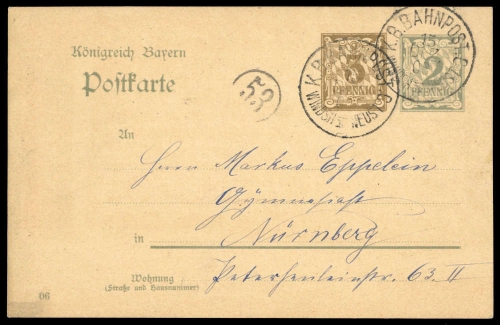 Königreich Bayern
Postkarte
53
3
PFENNIG
K.B.BAHNPOST
15
2
PFENNIG
An
Herrn Markus Eppelein
Gymnasiast
in Nürnberg
Wohnung
(Straße und Hausnummer)
Petersenleinstr. 63 II
06